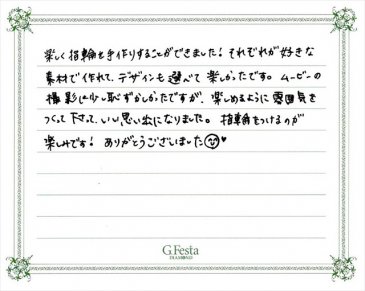 楽しく指輪を手作りすることができました！それぞれが好きな
素材で作れて、デザインも選べて楽しかったです。ムービーの
撮影は少し恥ずかしかったですが、楽しめるように雰囲気を
つくって下さって、いい思い出になりました。指輪をつけるのが
楽しみです！ありがとうございました♥
G.Festa
DIAMOND